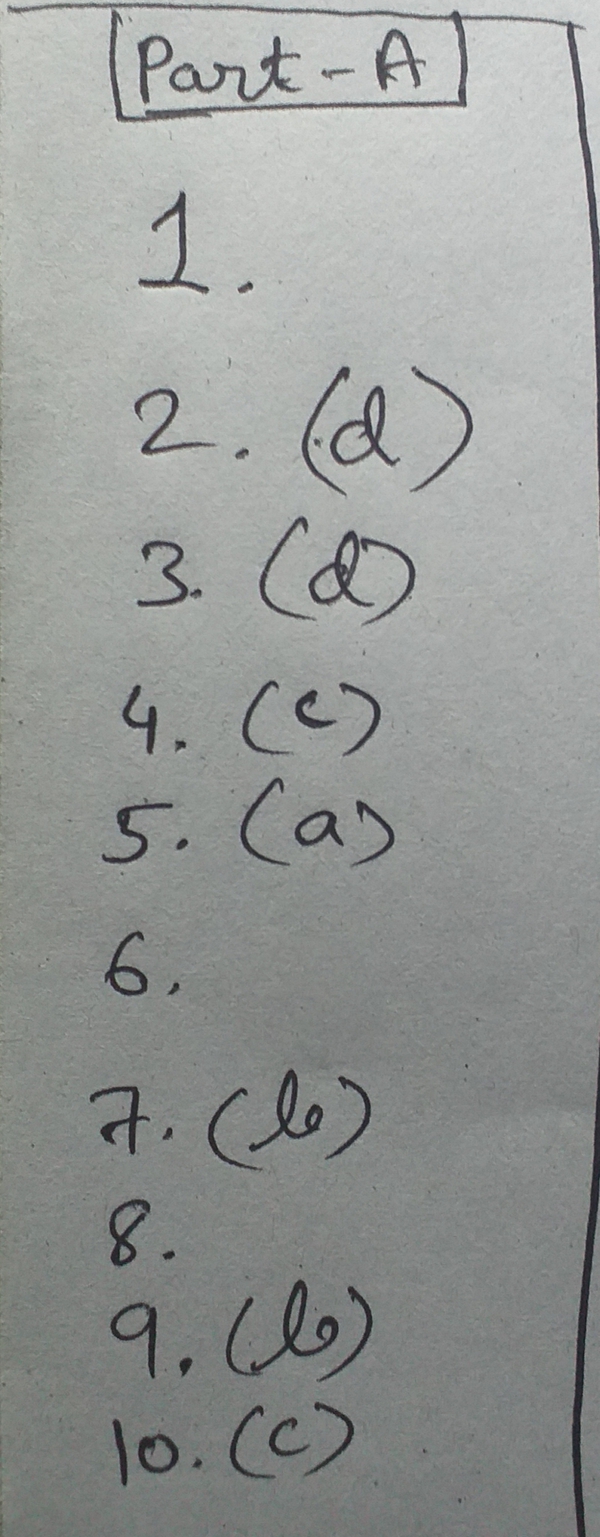 Part-A
1.
2. (d)
3. (d)
4. (c)
5. (a)
6.
7. (b)
8.
9. (b)
10. (c)